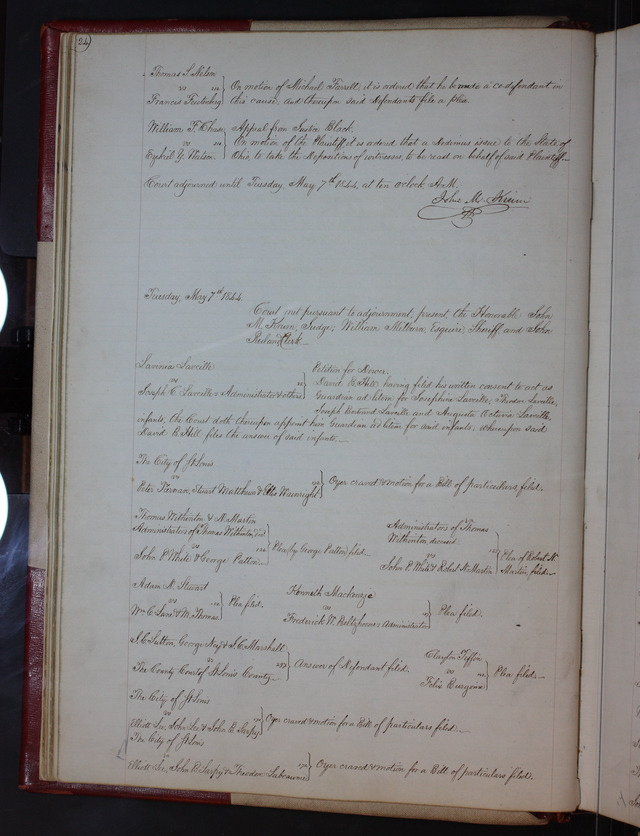 24
Thomas S. Nelson
vs
Francis Frutenberg
On motion of Michael Farrell, it is ordered that he be made a co defendant in
this cause, and thereupon said defendants file a plea.
William F. Chase
vs
Watson
Appeal from Justice Black.
On motion of the Plaintiff, it is ordered that a dedimus issue to the State of
Ohio, to take the depositions of witnesses, to be read on behalf of said Plaintiff.
Court adjourned until Tuesday, May 7th 1844, at ten o'clock A.M.
John M. Krum
Tuesday, May 7th 1844.
Court met pursuant to adjournment, present, the Honorable John
M. Krum, Judge; William Milburn, Esquire, Sheriff and John
Clerk
Lavinia Laveille
vs
Joseph C. Laveille's Administrator & others
Petition for Dower.
David B. Hill having filed his written consent to act as
Guardian ad litem for Josephine Laveille, Theodore Laveille,
Joseph Laveille and Augusta Octavia Laveille,
infants, the Court doth thereupon appoint him Guardian ad litem for said infants, whereupon said
David B. Hill files the answer of said infants.
The City of St Louis
vs
Peter Tiernan, Stuart Matthews & Wainright
Oyer craved & motion for a Bill of particulars filed.
Thomas Withinton & M. Martin
Administrators of Thomas Withinton, decd
vs
John P. White & George Patton
Plea by George Patton filed.
Administrators of Thomas
Withinton deceased
vs
John P. White & Robert N. Martin
Plea of Robert N.
Martin filed.
Adam N. Stewart
vs
Wm C. Lane & M. Thomas
Plea filed.
Kenneth Mackenzie
vs
Frederick W. Administrator
Plea filed.
J. C. Sutton, George & J. C. Marshall
vs
The County Court of St Louis County
Answer of Defendant filed.
Clayton Tiffin
vs
Felix
Plea filed.
The City of St Louis
vs
Elliott Lee, John Lee & John B. Sarpy
Oyer craved & motion for a Bill of particulars filed.
The City of St Louis
vs
Elliott Lee, John B. Sarpy & Theodore Labeaume
Oyer craved & motion for a Bill of particulars filed.